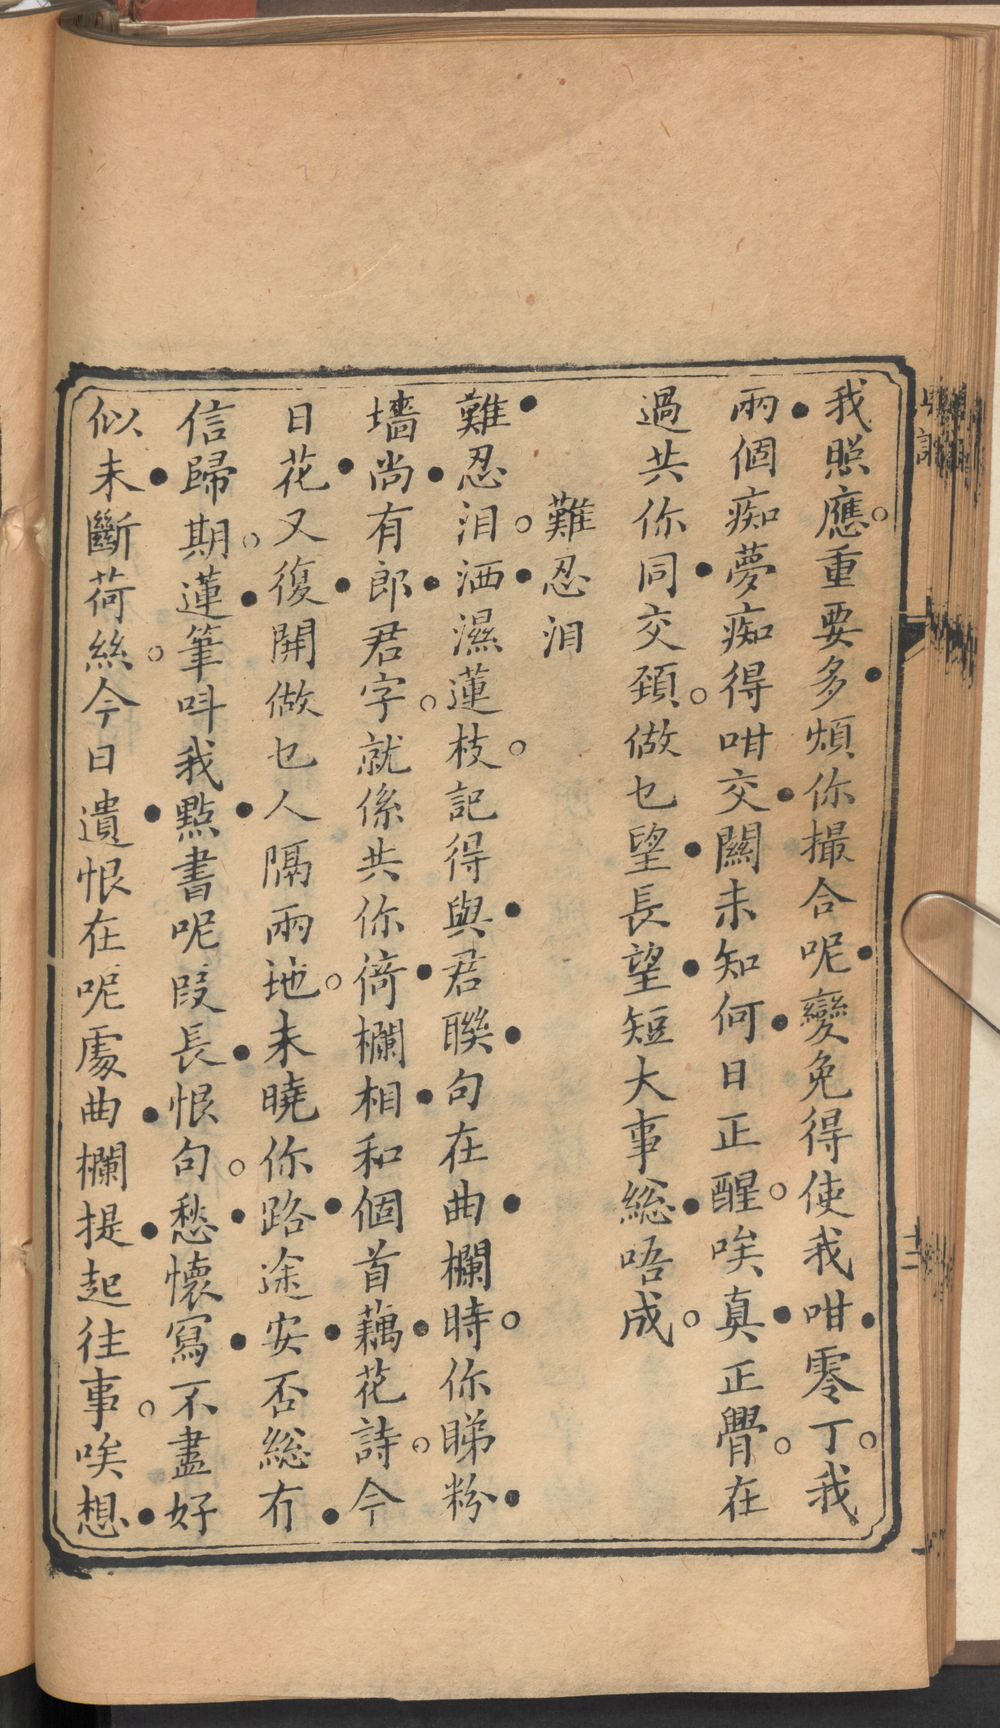 我照應。重要多煩你撮合呢變免得使我咁零丁。我
兩個痴夢痴得咁交關未知何日正醒。唉真正瞓。在
過共你同交頸。做乜望長望短大事総唔成。
難忍泪
難忍泪。洒濕蓮枝。記得與君聯句在曲欄時。你睇粉
墻尚有郎君字。就係共你倚欄相和個首藕花詩。今
日花又復開做乜人隔兩地。未曉你路途安否総冇
信歸期。蓮筆呌我點書呢叚長恨句。愁懷寫不盡好
似未斷荷絲。今日遺恨在呢處曲欄提起往事。唉想